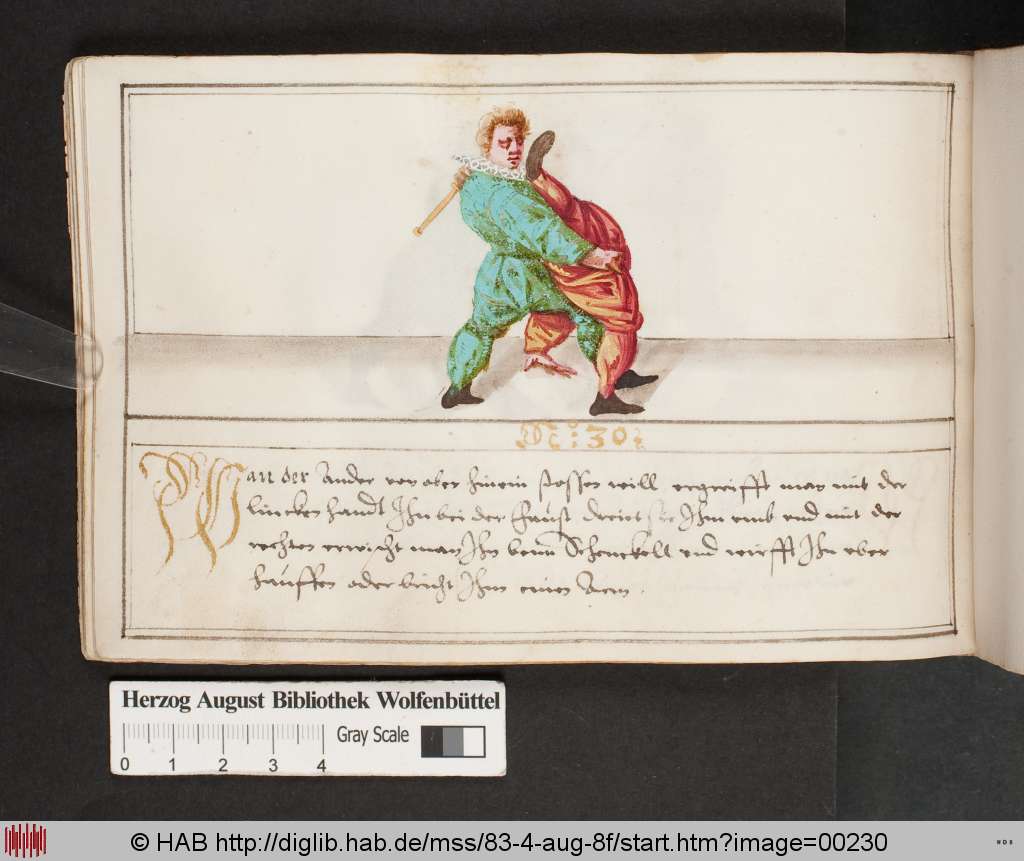 Nc: 30:
Wan der Ander von ober hinein stossen will ergreifft man mit der
lincken handt Ihn bei der Faust dreiet sie Ihm umb und mit der
rechten erwischt man Ihn beim Schenckell und wirfft Ihn uber
hauffen oder bricht Ihm einen Arm.
Herzog August Bibliothek Wolfenbüttel
Gray Scale
0 1 2 3 4
© HAB http://diglib.hab.de/mss/83-4-aug-8f/start.htm?image=00230